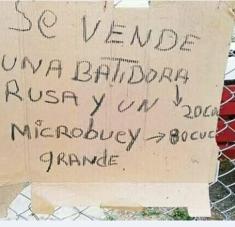 Se VENDE
UNA BATIDORA
RUSA Y UN ↓ 20CUC
MICROBUEY → 80CUC
GRANDE.